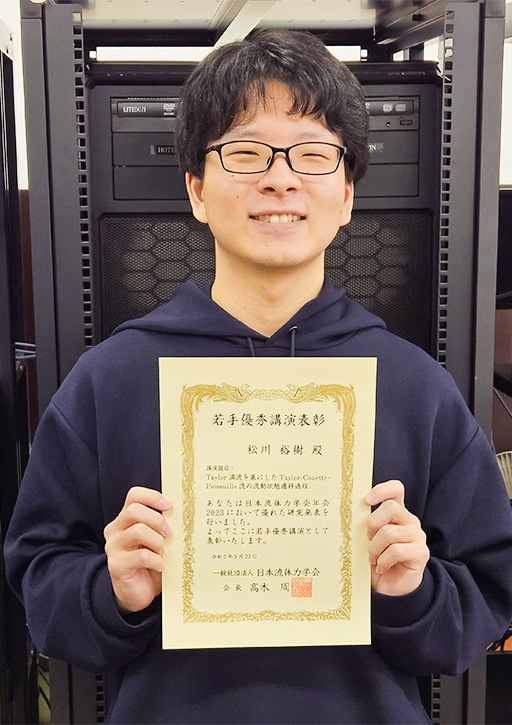 LITEON
HOTE
IN
若手優秀講演表彰
松川 裕樹 殿
講演題目：
Taylor 渦流を基にした Taylor-Couette-
Poiseuille 流の流動状態遷移過程
あなたは日本流体力学会年会
2023において優れた研究発表を
行いました。
よってここに若手優秀講演として
表彰いたします。
令和5年9月22日
一般社団法人 日本流体力学会
会長 高木 周